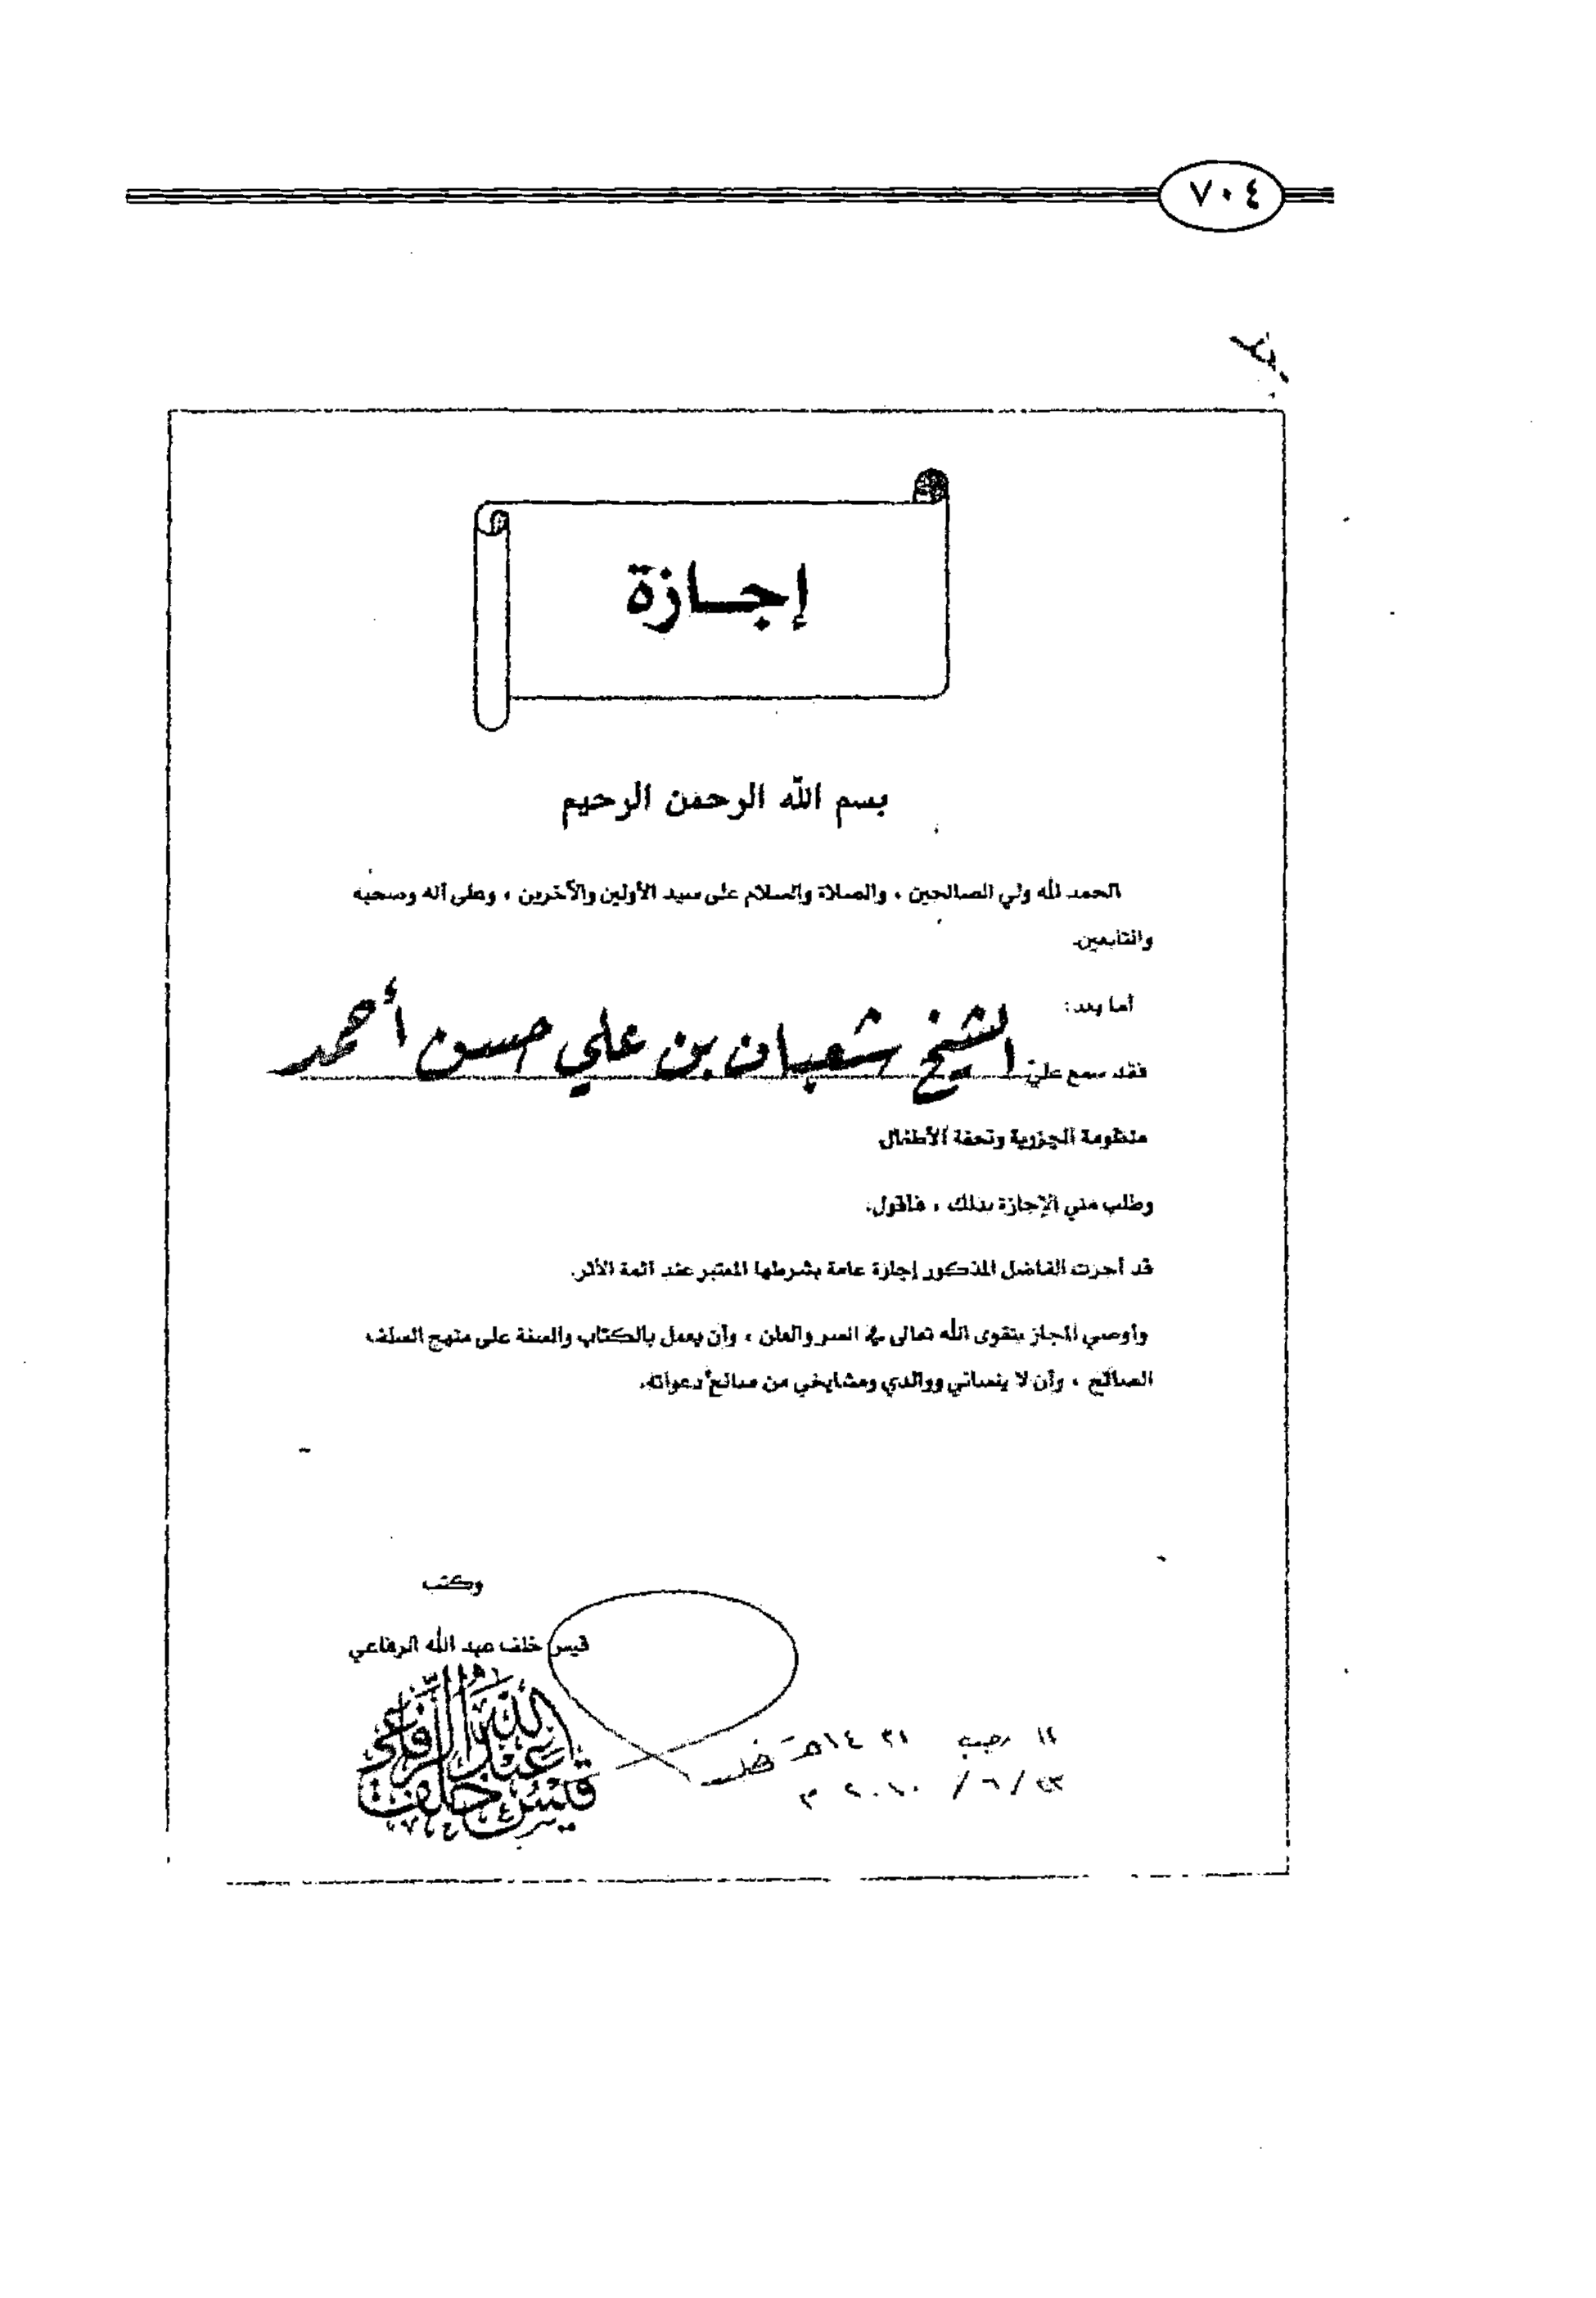 ٧٠٤
إجـازة
بسم الله الرحمن الرحيم
الحمد لله ولي الصالحين ، والصلاة والسلام على سيد الأولين والآخرين ، وعلى آله وصحبه
والتابعين.
أما بعد:
فقد سمع علي الشيخ شعبان بن علي حسن أحمد
منظومة الجزرية وتحفة الأطفال
وطلب مني الإجازة بذلك ، فأقول:
قد أجزت الفاضل المذكور إجازة عامة بشرطها المعتبر عند أئمة الأثر.
وأوصي المجاز بتقوى الله تعالى في السر والعلن ، وأن يعمل بالكتاب والسنة على منهج السلف
الصالح ، وأن لا ينساني ووالدي ومشايخي من صالح دعواته.
وكتب
قيس خلف عبد الله الرفاعي
رجب ١٤٣١هـ
٢٣ / ٦ / ٢٠١٠ م
قيس خلف عبد الله الرفاعي